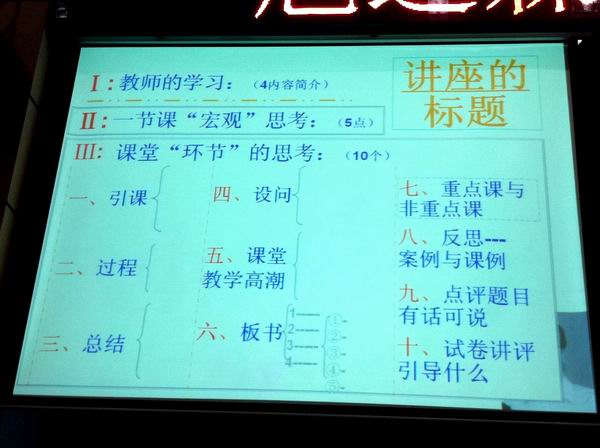 讲座的
标题
Ⅰ：教师的学习：（4内容简介）
Ⅱ：一节课“宏观”思考：（5点）
Ⅲ：课堂“环节”的思考：（10个）
一、引课
二、过程
三、总结
四、设问
五、课堂
教学高潮
六、板书
1----
2----
3----
4----
①-
②-
③-
④-
⑤-
七、重点课与
非重点课
八、反思---
案例与课例
九、点评题目
有话可说
十、试卷讲评
引导什么